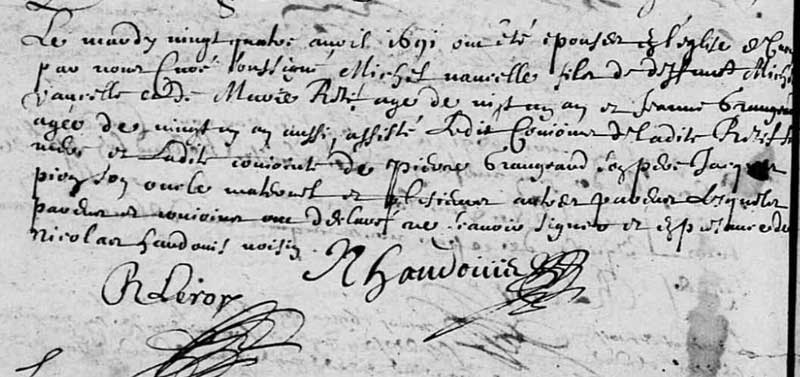 Le mardy vingt quatre avril 1691 ont été épousez en l'église de
par nous Curé soussigné Michel vauxelle filz de deffunct Michel
vauxelle et de Marie René agé de vingt un an et Jeanne Grangeard
agée de vingt un an aussi, assisté ledit conjoint de ladite René sa
mère et ladite conjointe de pierre Grangeard son père Jacques
pion son oncle maternel et plusieurs autres parens lesquels
parens et conjoins ont déclaré ne scavoir signer et en présence de
Nicolas haudouis voisin
N haudouis
R Leroy